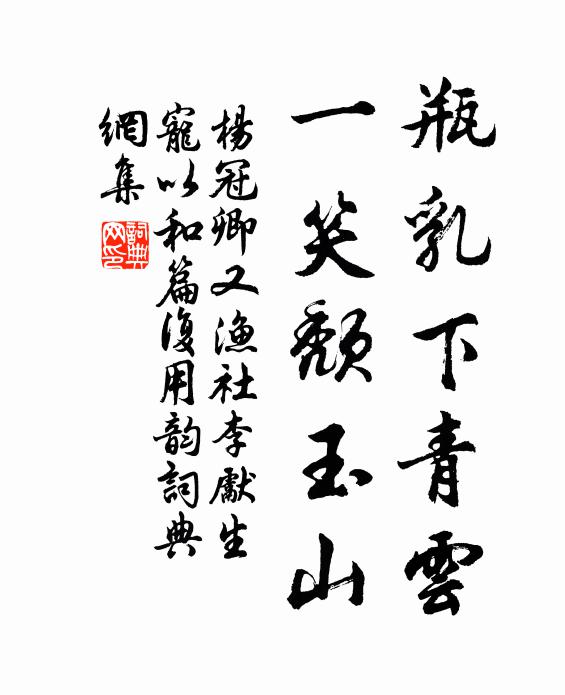 瓶乳下青雲
一笑頹玉山
楊冠卿又漁社李獻生
寵以和篇復用韵詞典
網集
詞典
网印